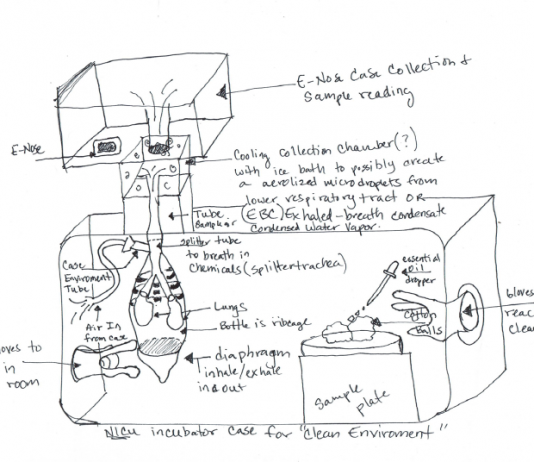 E-Nose Case Collection &
Sample reading
E-Nose
Cooling collection chamber(?)
with ice bath to possibly areate
a aerolized microdroplets from
lower respiratory tract OR
(EBC) Exhaled-breath condensate
Condensed Water Vapor.
Tube
Sample air
splitter tube
to breath in
chemicals (splitter trachea)
Case
Enviroment
Tube
essential
oil
dropper
Air In
from case
Lungs
Bottle is ribcage
diaphragm
inhale/exhale
in & out
Cotton
Balls
Gloves
reac
clea
oves to
in
room
Sample
plate
NICU incubator case for "Clean Enviroment"